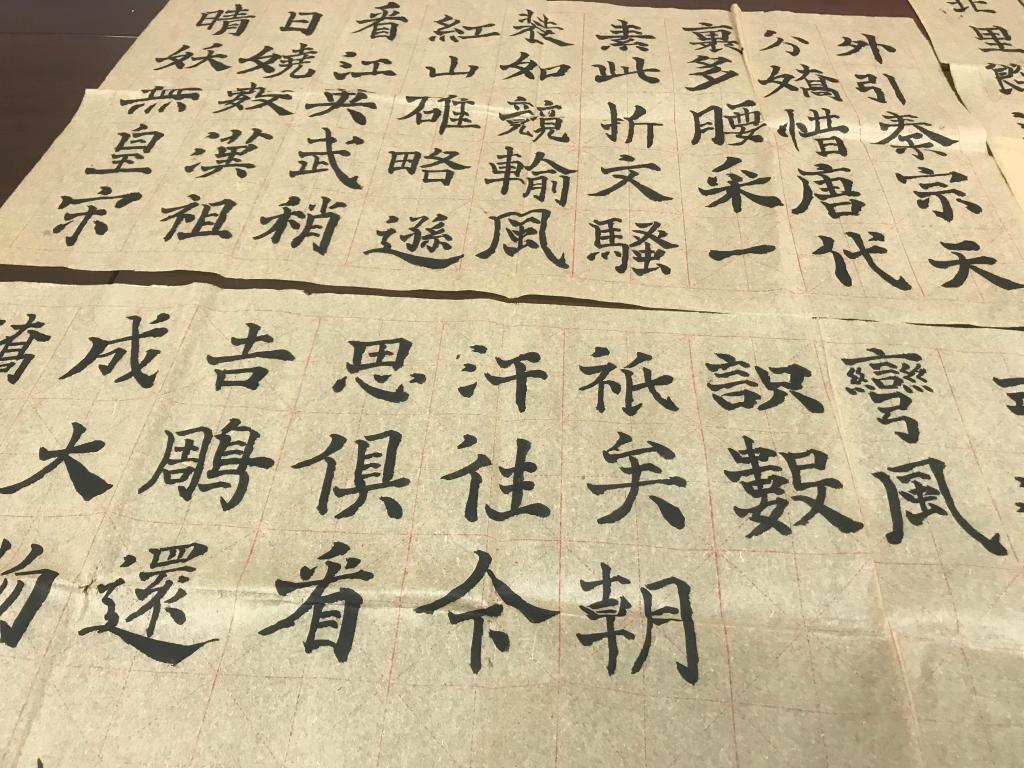 晴日看紅裝素裹分外
妖嬈江山如此多嬌引
無數英雄競折腰惜秦
皇漢武略輸文采唐宗
宋祖稍遜風騷一代天
成吉思汗祇識彎
大鵰俱往矣數風
物還看今朝
北
里